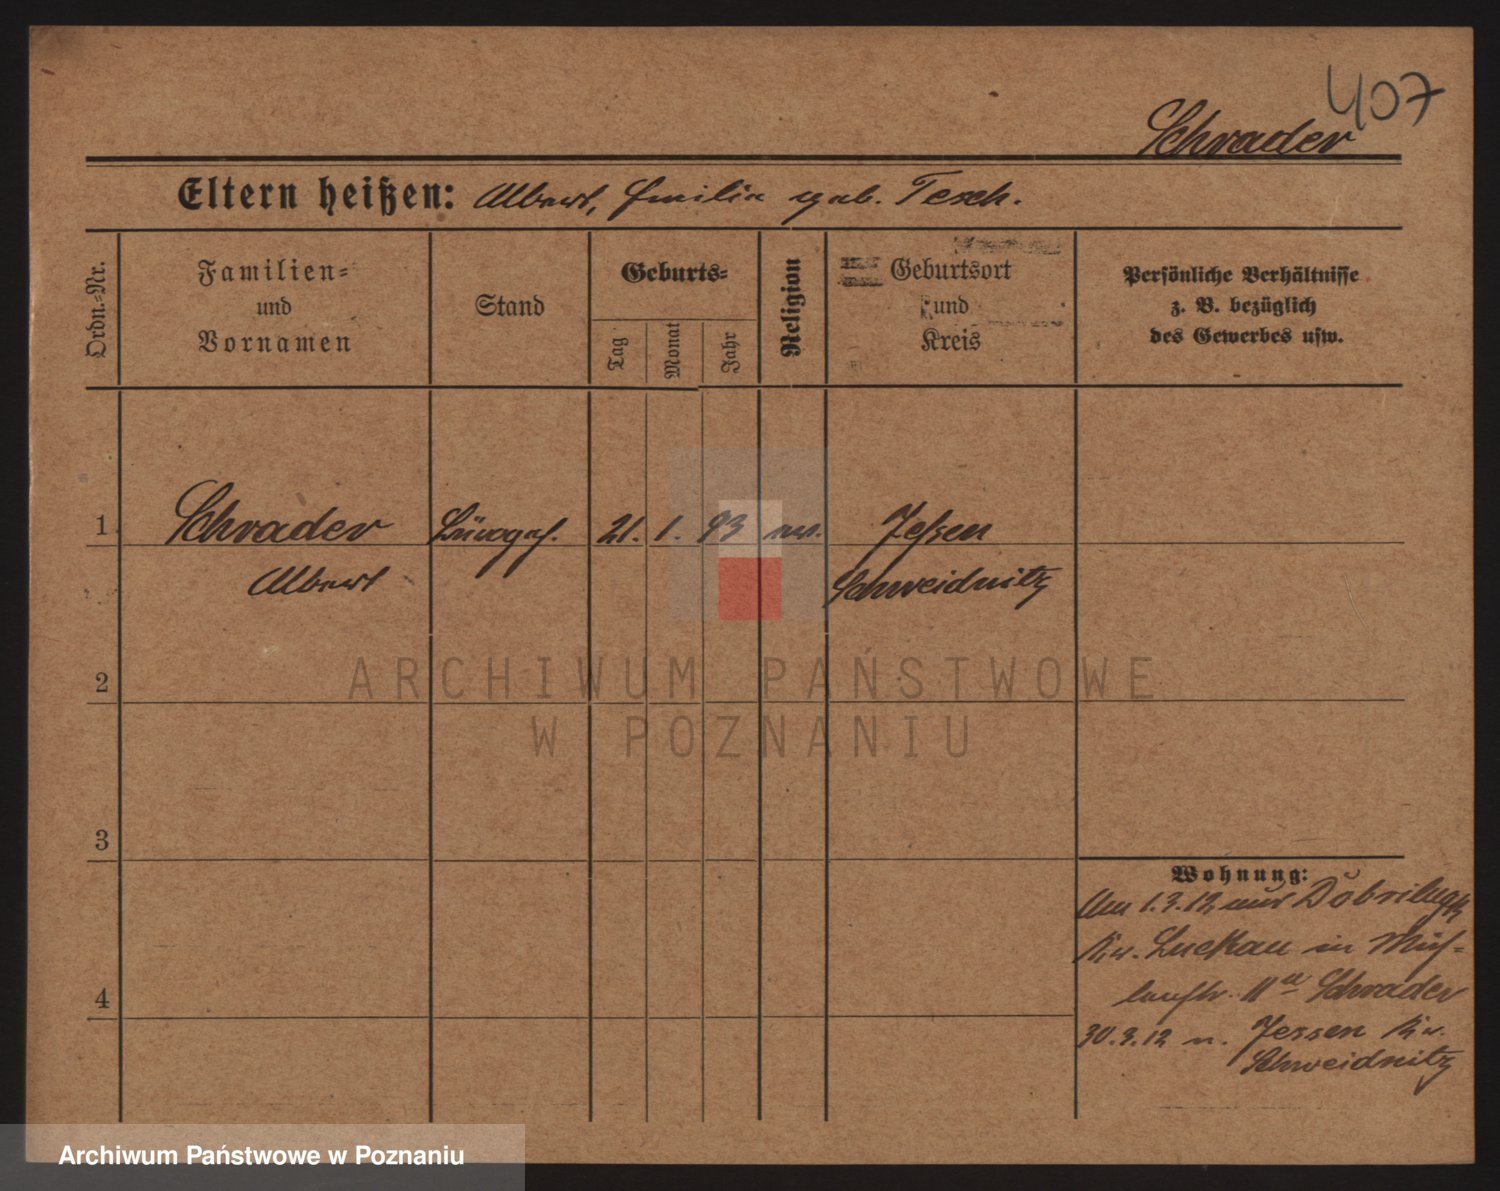 407
Schrader
Eltern heißen: Albert, Emilie geb. Tesch.
Ordn.-Nr.
Familien-
und
Vornamen
Stand
Geburts-
Tag
Monat
Jahr
Religion
Geburtsort
und
Kreis
Persönliche Verhältnisse
z. B. bezüglich
des Gewerbes usw.
1. Schrader 21. 1. 93 ev. Jessen
Albert Schweidnitz
2
3
4
Wohnung:
Am 1.3.12 aus Dobrilugk
Kr. Luckau in
Schrader
30.3.12 n. Jessen Kr.
Schweidnitz
ARCHIWUM PAŃSTWOWE
W POZNANIU
Archiwum Państwowe w Poznaniu